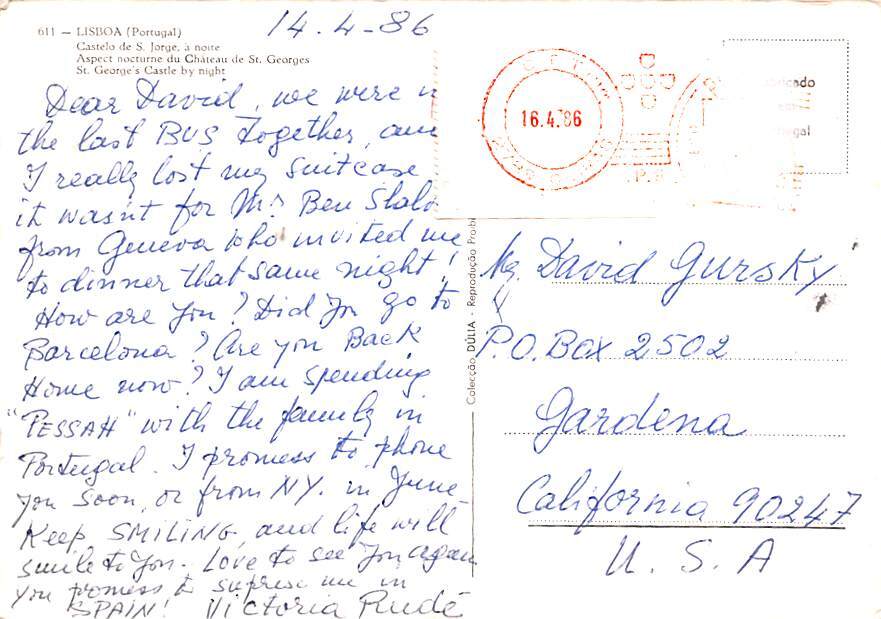 14.4-86
611 — LISBOA (Portugal)
Castelo de S. Jorge, à noite
Aspect nocturne du Château de St. Georges
St. George's Castle by night
Dear David, we were
the last BUS together,
I really lost my suitcase
it wasn't for Mr Ben
from Geneva who invited me
to dinner that same night!
How are you? Did you go to
Barcelona? Are you Back
Home now? I am spending
"PESSAH" with the family in
Portugal. I promess to phone
you soon, or from NY. in June
Keep SMILING, and life will
smile to you. Love to see you again
you promess to suprese me in
SPAIN! Victoria Rudé
16.4.86
Colecção DÚLIA - Reprodução
David Gursky
P.O. Box 2502
Gardena
California 90247
U.S.A